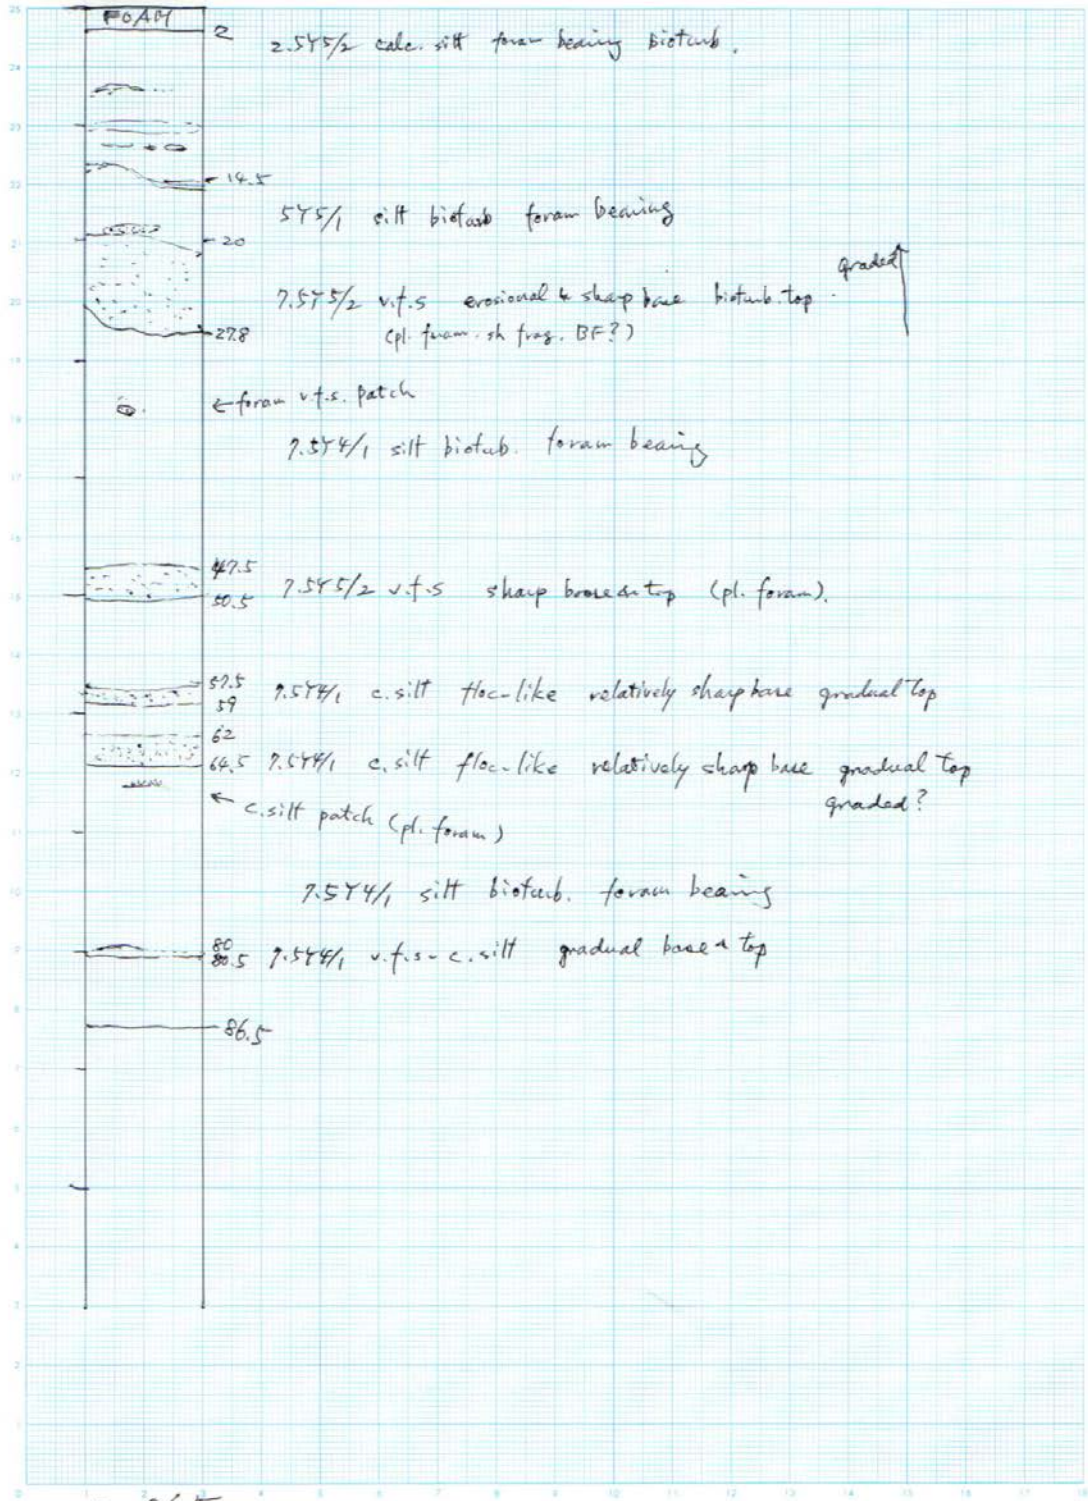 FOAM
2
2.5Y5/2 calc. silt foram bearing bioturb.
14.5
5Y5/1 silt bioturb foram bearing
20
graded
7.5Y5/2 v.f.s erosional & sharp base bioturb. top
(pl. foram. sh frag. BF?)
27.8
← foram v.f.s. patch
7.5Y4/1 silt bioturb. foram bearing
47.5
7.5Y5/2 v.f.s sharp base & top (pl. foram).
50.5
57.5 7.5Y4/1 c.silt floc-like relatively sharp base gradual top
59
62
64.5 7.5Y4/1 c.silt floc-like relatively sharp base gradual top
graded?
← c.silt patch (pl. foram)
7.5Y4/1 silt bioturb. foram bearing
80
80.5 7.5Y4/1 v.f.s - c.silt gradual base & top
86.5